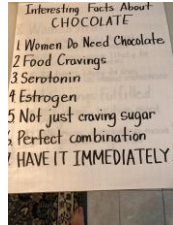 Interesting Facts About
CHOCOLATE
1. Women Do Need Chocolate
2 Food Cravings
3 Serotonin
4. Estrogen
5 Not just craving sugar
6. Perfect combination
7. HAVE IT IMMEDIATELY